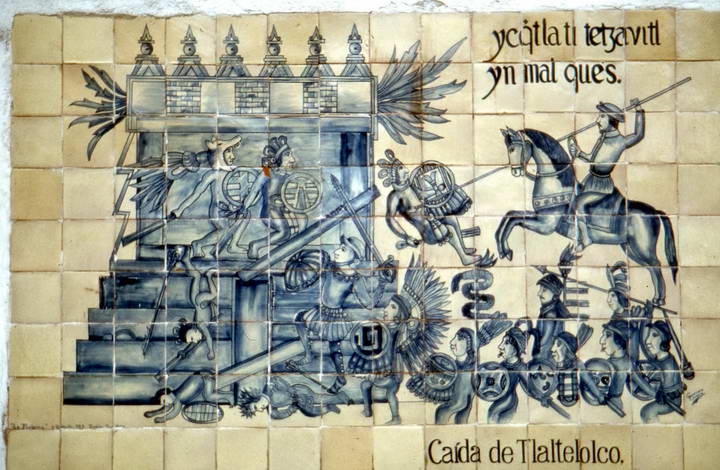 ycq̃tlati tetzavitl
yn mal ques.
Caída de Tlaltelolco.